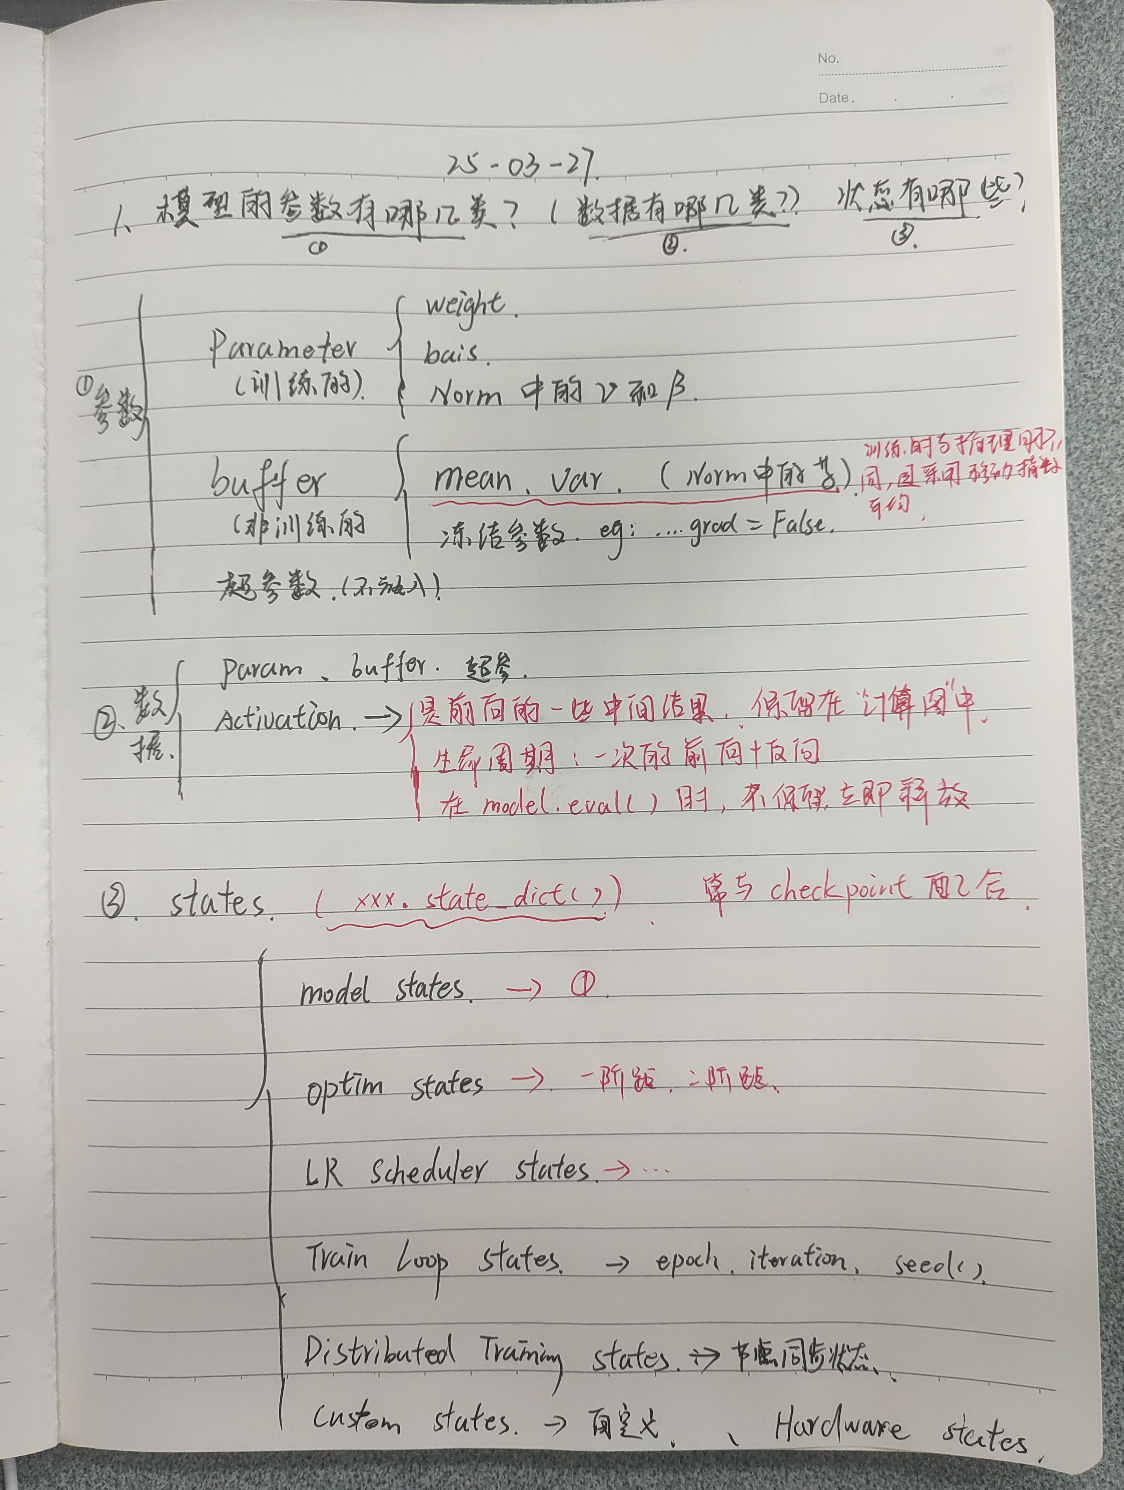 No.
Date.
25-03-27.
1、模型的参数有哪几类？（数据有哪几类？）状态有哪些？
① ②. ③.
①参数
Parameter (训练的).
weight.
bais.
Norm 中的 γ 和 β.
buffer (非训练的
mean、var.（Norm中的
训练时与推理时不同，因采用移动指数平均.
冻结参数. eg: ....grad = False.
超参数.(不
②、数据.
param、buffer. 超参.
Activation. → 是前向的一些中间结果、保留在"计算图"中.
生命周期：一次的前向+反向
在 model.eval() 时，不保留，立即释放
③. states. ( xxx. state_dict() ) . 常与 checkpoint 配合.
model states. → ①.
optim states → 一阶距、二阶距、
LR Scheduler states. → ...
Train Loop states. → epoch. iteration、seed().
Distributed Training states. → 节点同步状态、
Custom states. → 自定义. 、Hardware states.